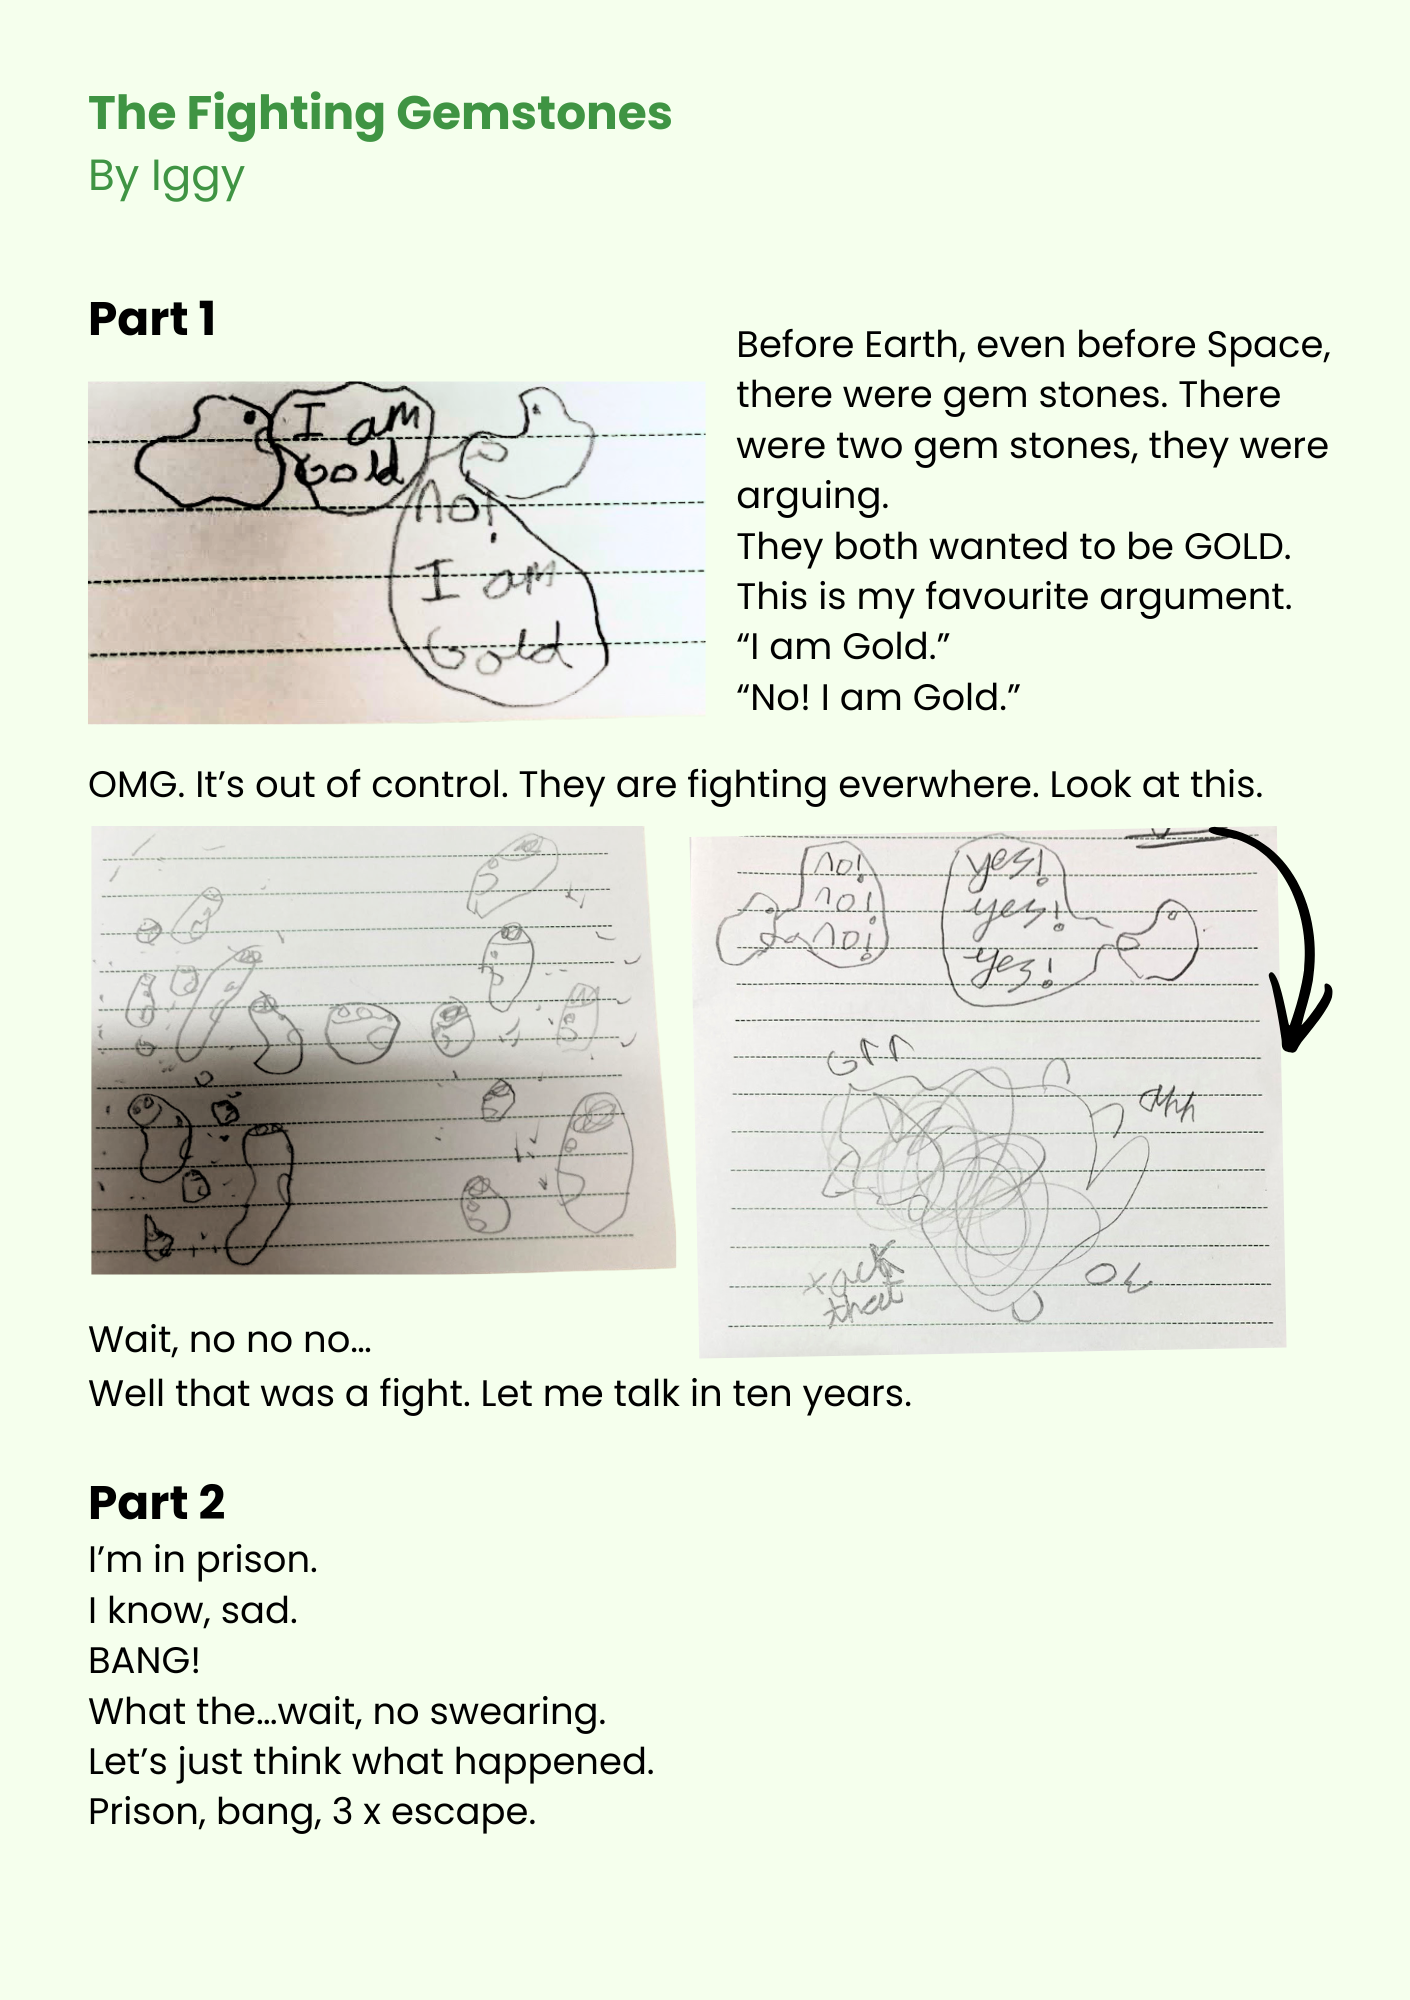 The Fighting Gemstones
By Iggy
Part 1
I am
Gold
No!
I am
Gold
Before Earth, even before Space,
there were gem stones. There
were two gem stones, they were
arguing.
They both wanted to be GOLD.
This is my favourite argument.
“I am Gold.”
“No! I am Gold.”
OMG. It’s out of control. They are fighting everwhere. Look at this.
no!
no!
no!
yes!
yes!
yes!
Grr
that
Wait, no no no...
Well that was a fight. Let me talk in ten years.
Part 2
I’m in prison.
I know, sad.
BANG!
What the...wait, no swearing.
Let’s just think what happened.
Prison, bang, 3 x escape.